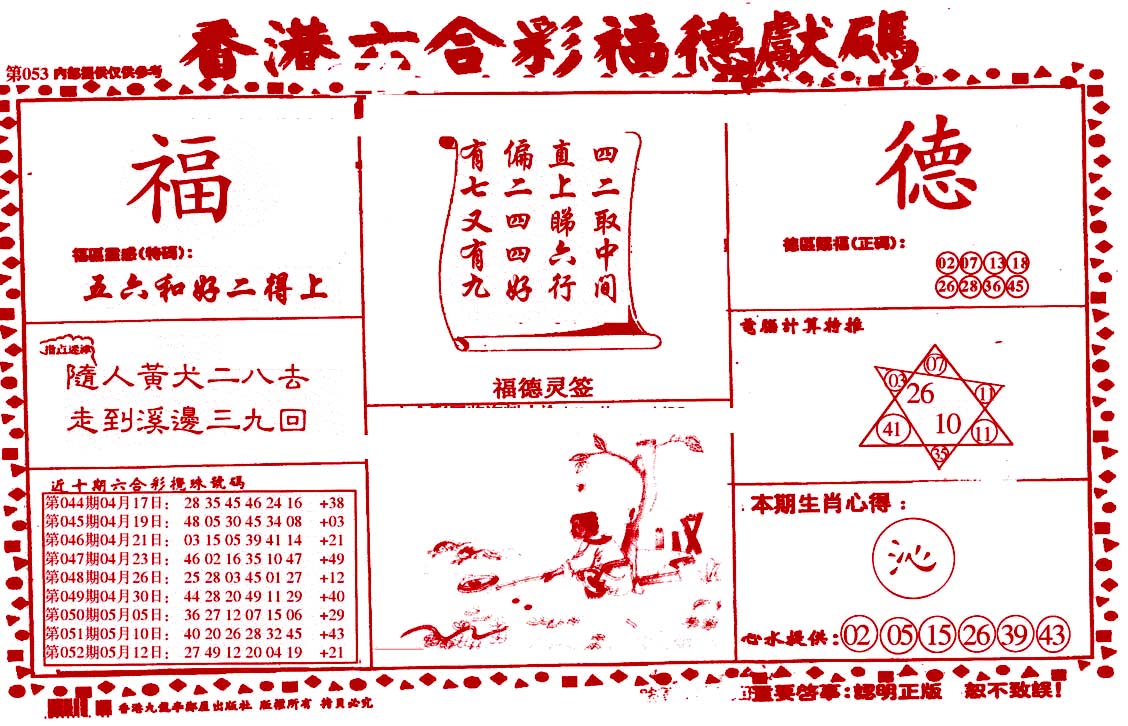 香港六合彩福德獻碼
第053 内部提供仅供参考
福
福區靈感(特碼):
五六和好二得上
指点迷津
隨人黃犬二八去
走到溪邊三九回
近十期六合彩攪珠號碼
第044期04月17日: 28 35 45 46 24 16 +38
第045期04月19日: 48 05 30 45 34 08 +03
第046期04月21日: 03 15 05 39 41 14 +21
第047期04月23日: 46 02 16 35 10 47 +49
第048期04月26日: 25 28 03 45 01 27 +12
第049期04月30日: 44 28 20 49 11 29 +40
第050期05月05日: 36 27 12 07 15 06 +29
第051期05月10日: 40 20 26 28 32 45 +43
第052期05月12日: 27 49 12 20 04 19 +21
四二取中间
直上睇六行
偏二四四好
有七又有九
福德灵签
德
德區賜福(正碼):
02 07 13 18
26 28 36 45
電腦計算特推
07
03 26 11
41 10 11
35
本期生肖心得:
沁
心水提供: 02 05 15 26 39 43
重要啓事:認明正版 恕不致誤!
版權所有